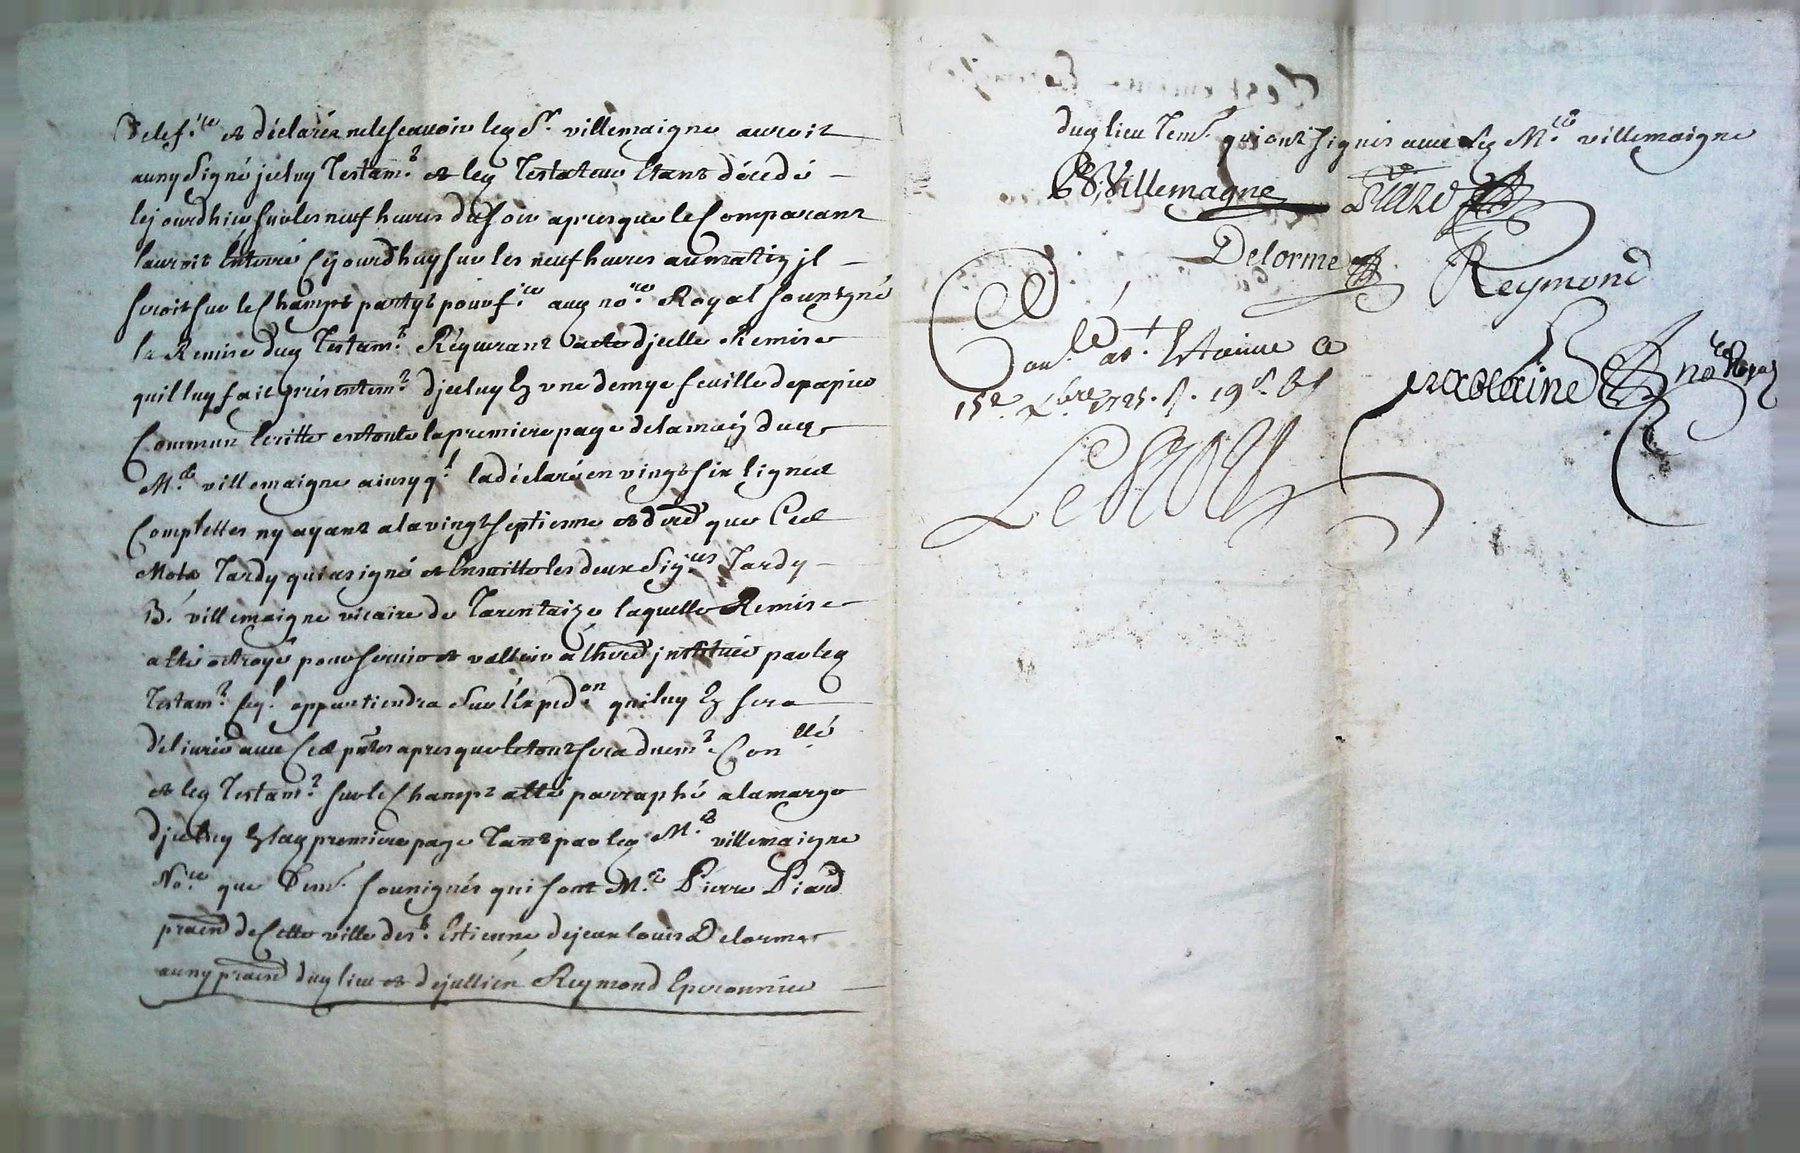 De le f.re et déclarér ne le scauoir led Sr. villemaigne auroit
aussy signé jceluy Testam.t et led Testateur Etant décédé
le jourdhier sur les neuf heures du soir apres que le Comparant
lauroit Enterré Cejourdhuy sur les neuf heures du matin jl
seroit sur le Champt partyt pour f.re aud no.re Royal sousigné
la Remise dud Testam.t Requerant acte djcelle Remise
quil luy fait présentem.t djceluy En vne demye feuille de papier
Commun Ecritte en toute la premiere page de la main dud
M.e villemaigne ainsy q.l la déclaré en vingt six lignes
Complettes ny ayant a la vingt septieme et der.e que Ces
Mots Tardy qui a signé et Ensuitte les deux sig.res Tardy
B. villemaigne vicaire de Tarentaize laquelle Remise
a êté octroyé pour seruir et valloir a lhered jnstituée par led
Testam.t se q.l appartiendra Sur l'Exped.on qui luy En sera
déliurée auec Ces p.ntes apres que le tout sera duem.t Con.llé
et led Testam.t sur le Champt a êté parraphé a la marge
djceluy En lad premiere page Tant par led M.e villemaigne
No.re que Tem. sousignés qui sont M.e Pierre Piard
praen de Cette ville de S.t Estienne de jean louis Delorme
aussy praen dud lieu et de jullien Reymond Eperonnier
dud lieu Tem. qui ont signés auec led M.e villemaigne
B Villemagne Piard
Delorme Reymond
Con.lé a S.t Etienne le
15e xbre 1725. R. 19s 6d
no.re Royal